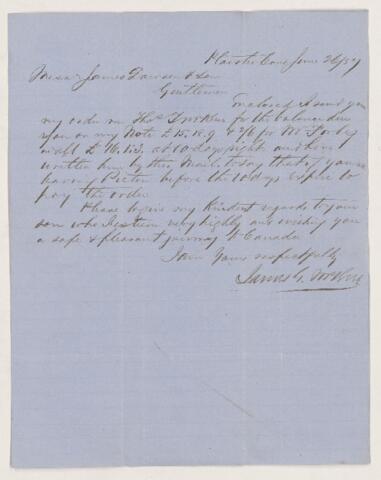 June 26/57
Messrs James Dawson & Son
Gentlemen
Enclosed I send you
my order on Thos for the balance due
you on my Note £15.18.9 & for Mr
in all £16. at 10 days sight and have
written him by this Mail to say that if you
leaving Pictou before the 10 days expire to
pay the order
Please to give my kindest regards to your
son who I esteem very highly and wishing you
a safe & pleasant journey to Canada
I am Yours respectfully
James G.